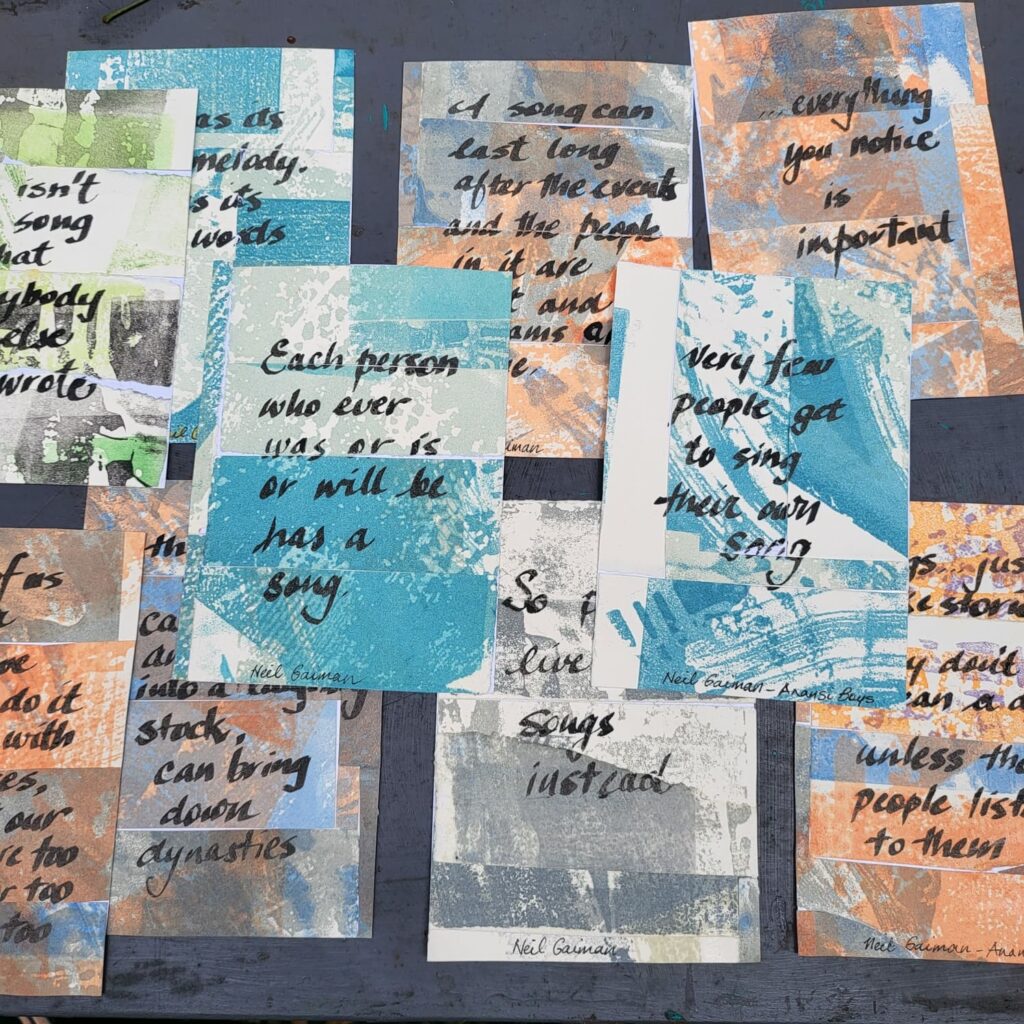 isn't
song
hat
ybody
else
wrote
as its
melody.
s its
words
A song can
last long
after the events
and the people
in it are
and
ams a
e,
...everything
you notice
is
important
Each person
who ever
was or is
or will be
has a
song.
Neil Gaiman
very few
people get
to sing
their own
song
Neil Gaiman - Anansi Boys
f us
do it
with
es,
our
re too
r too
too
th
ca
into a
stock,
can bring
down
dynasties
So p
live
songs
instead
Neil Gaiman
gs... jus
ke stori
y don't
an a d
unless the
people list
to them
Neil Gaiman - Anan